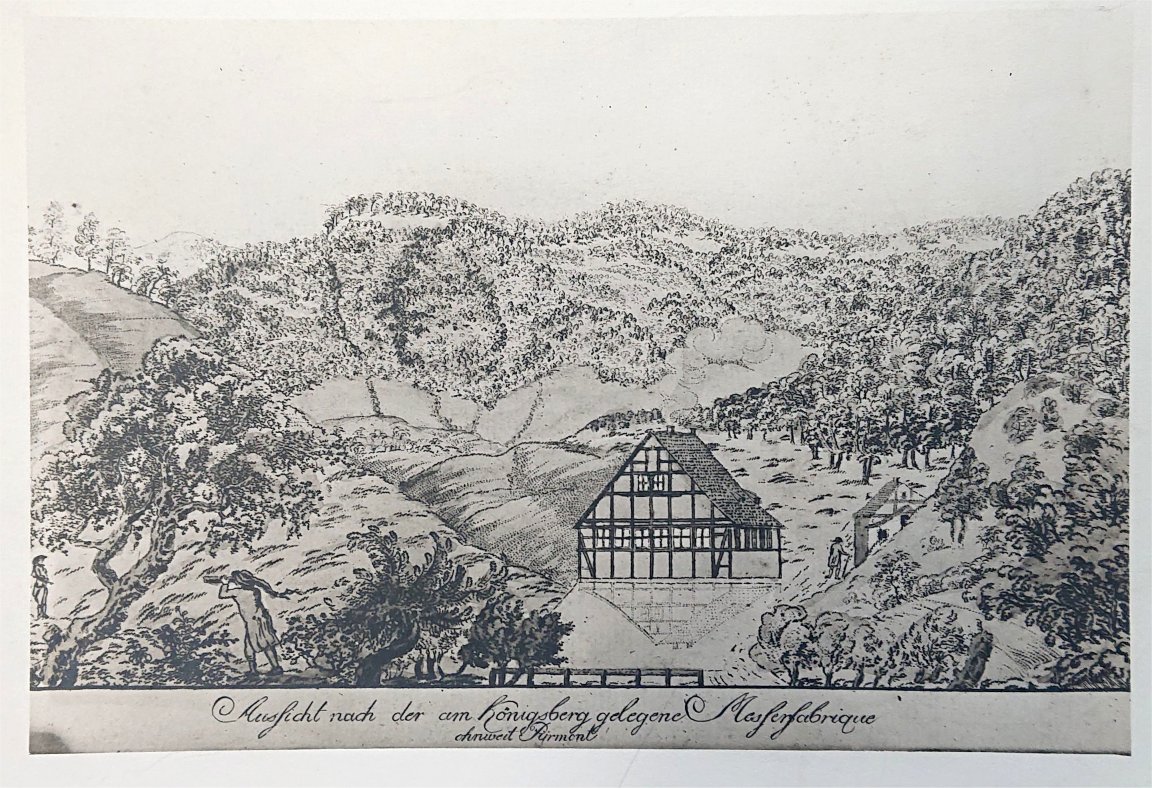 Aussicht nach der am Königsberg gelegene Messerfabrique
ohnweit Pürmont